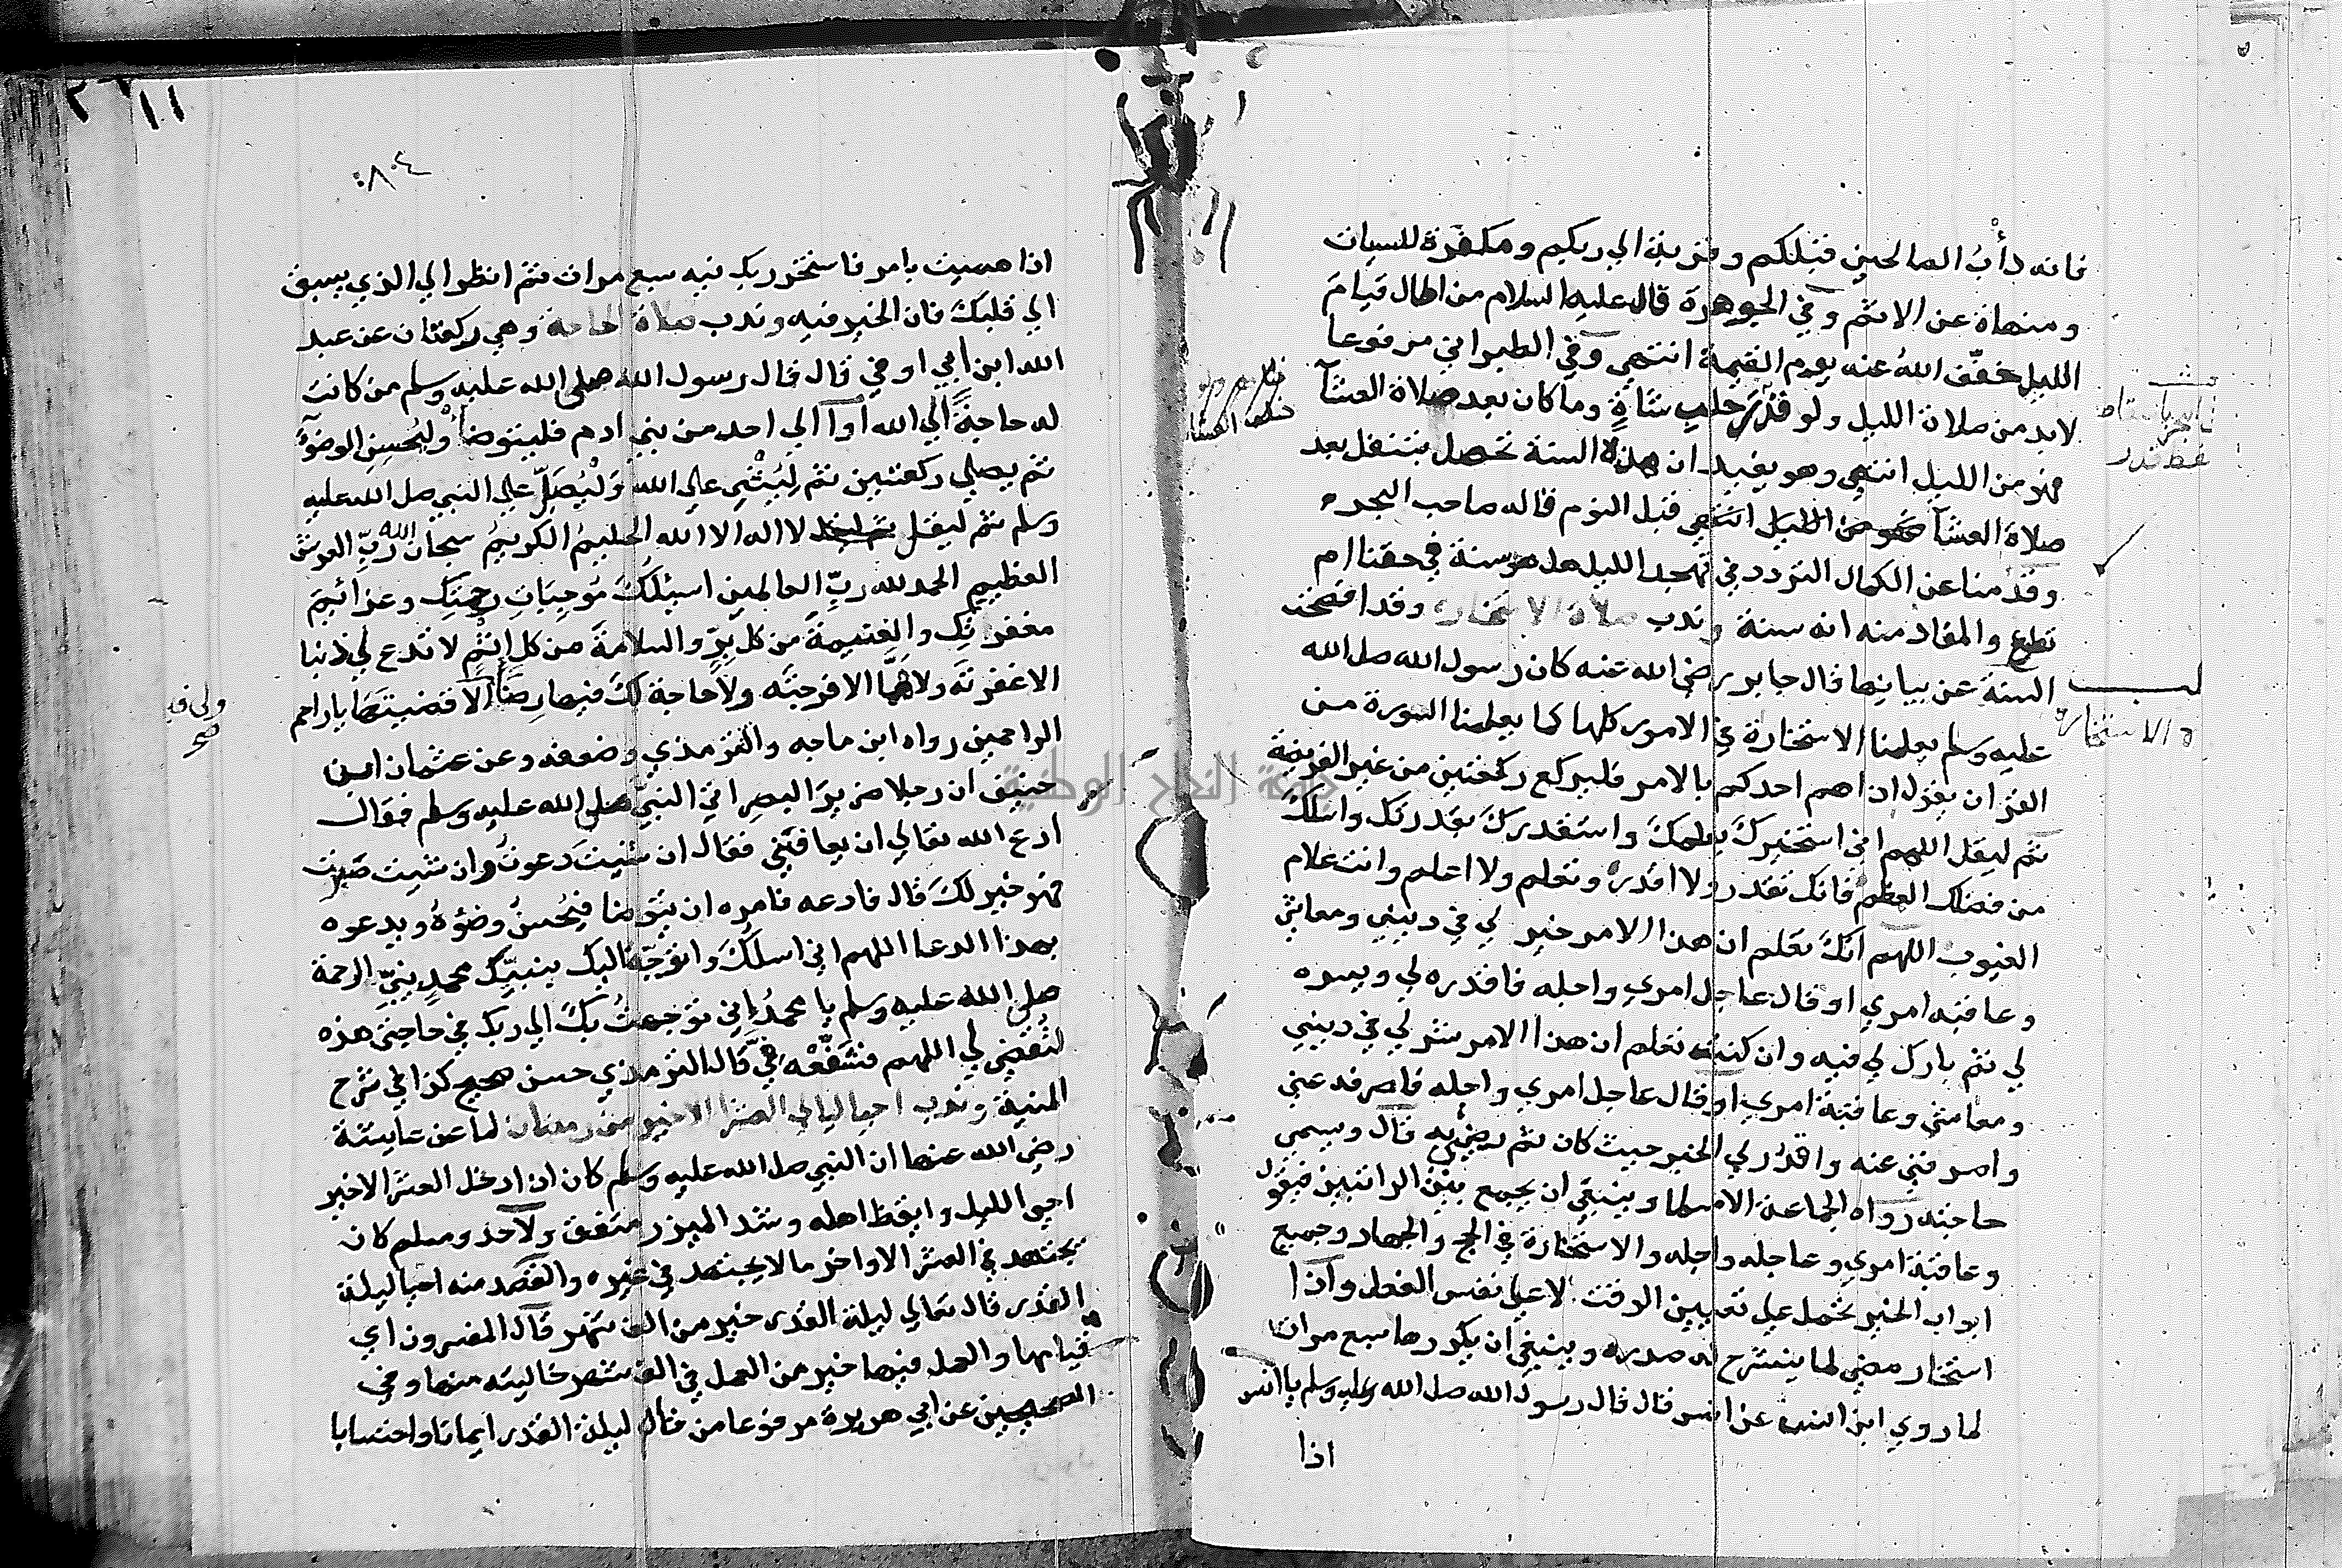 فانه دأْبُ الصالحين قبلكم وقربة الي ربكم ومكفرة للسيات
ومنهاة عن الاثم وفي الجوهرة قال عليه السلام من اطال قيامَ
الليل خفّف اللهُ عنه يوم القيمة انتهي وفي الطبراني مرفوعا
لابد من صلاة الليل ولو قَدْرَ حلبِ شاةٍ وما كان بعد صلاة العشآ
فهو من الليل انتهي وهو يفيد ان هذه السنة تحصل بتنفل بعد
صلاة العشآ قبل النوم قاله صاحب البحر
وقدمنا عن الكمال التردد في تهجد الليل هل هو سنة في حقنا ام
تطوع والمفاد منه انه سنة وندب صلاة الاستخارة وقد افصحت
السنة عن بيانها قال جابر رضي الله عنه كان رسول الله صلى الله
عليه وسلم يعلمنا الاستخارة في الامور كلها كما يعلمنا السورة من
القران يقول اذا هم احدكم بالامر فليركع ركعتين من غير الفريضة
ثم ليقل اللهم اني استخيرك بعلمكَ واستقدركَ بقدرتك واسلكَ
من فضلك العظيم فانك تقدر ولا اقدر وتعلم ولا اعلم وانت علام
الغيوب اللهم انكَ تعلم ان هذا الامر خير لي في ديني ومعاشي
وعاقبه امري او قال عاجل امري واجله فاقدره لي ويسره
لي ثم بارك لي فيه وان كنت تعلم ان هذا الامر شر لي في ديني
ومعاشي وعاقبة امري او قال عاجل امري واجله فاصرفه عني
واصرفني عنه واقدُر لي الخير حيث كان ثم رضني به قال ويسمي
حاجته رواه الجماعة الا مسلما وينبغي ان يجمع بين الروايتين فيقول
وعاقبة امري وعاجله واجله والاستخارة في الحج والجهاد وجميع
ابواب الخير تحمل علي تعيين الوقت لا علي نفس الفعل واذا
استخار مضي لما ينشرح له صدره وينبغي ان يكررها سبع مرات
لما روي ابن السني عن انس قال قال رسول الله صلى الله عليه وسلم يا انس
اذا
الاستخارة
٨٠٤
١١
اذا هممت بامر فاستخر ربك فيه سبع مرات ثم انظر الي الذي يسبق
الي قلبكَ فان الخير فيه وندب صلاة الحاجة وهي ركعتان عن عبد
الله ابن أبي اوفي قال قال رسول الله صلى الله عليه وسلم من كانت
له حاجةٌ الي الله او الي احد من بني ادم فليتوضأ ولْيُحسِنِ الوضؤَ
ثم يصلي ركعتين ثم لِيُثْنِي علي الله ولْيُصَلِّ علي النبي صلى الله عليه
وسلم ثم ليقل لا اله الا الله الحليمُ الكريمُ سبحان الله رَبِّ العرش
العظيم الحمد لله ربِّ العالمين اسئلُكَ مُوجِبَاتِ رحمتِك وعزائيمَ
مغفرتِك والغنيمةَ من كل بِرٍّ والسلامةَ من كل إِثمٍ لا تدع لي ذنبا
الا غفرتَه ولا هَمًّا الا فرجتَه ولا حاجة لكَ فيها رِضًا الا قضيتَها يا ارحم
الراحمين رواه ابن ماجه والترمذي وضعفه وعن عثمان ابن
حنيف ان رجلا ضريرَ البصر اتي النبيَّ صلى الله عليه وسلم فقال
ادع الله تعالي ان يعافيَني فقال ان شئيتَ دعوتُ وان شئيت صَبَرْتَ
فهو خير لكَ قال فادعه فامره ان يتوضا فيُحسنُ وضؤهُ ويدعوه
بهذا الدعا اللهم اني اسلكَ واتوَجَّهُ اليك بنبيِّك محمدٍ نبيِّ الرحمة
صلى الله عليه وسلم يا محمدُ إني توجهتُ بكَ الي ربكِ في حاجتي هذه
لتُقْضَي لي اللهم فشَفِّعْهُ فيَّ قال الترمذي حسن صحيح كذا في شرح
المنية وندب احيا ليالي العشر الاخير من رمضان لما عن عايشة
رضي الله عنها ان النبي صلى الله عليه وسلم كان اذا دخل العشر الاخير
احيي الليل وايقظ اهله وشد الميزر متفق ولاحمد ومسلم كان
يجتهد في العشر الاواخر ما لا يجتهد في غيره والقصد منه احيا ليلة
القدر قال تعالي ليلة القدر خير من الف شهر قال المفسرون اي
قيامها والعمل فيها خير من العمل في الف شهر خاليته منها وفي
الصحيحين عن ابي هريرة مرفوعا من قال ليلة القدر ايمانا واحتسابا
صح
جامعة النجاح الوطنية